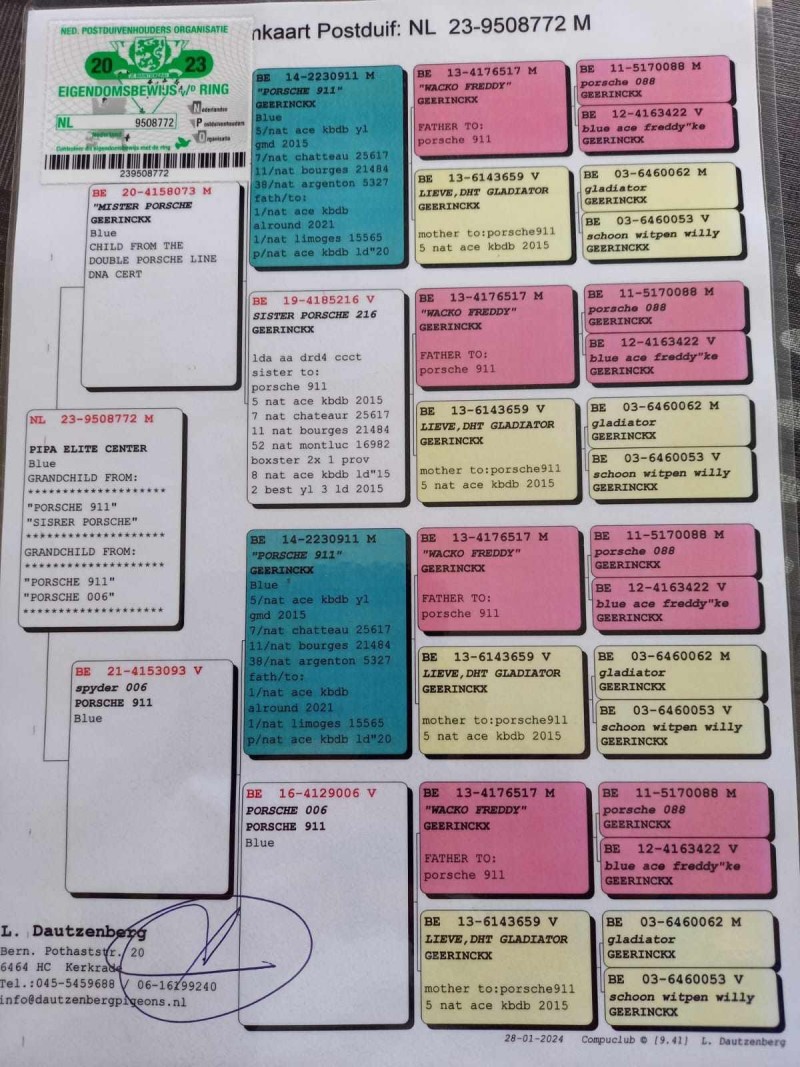 NED. POSTDUIVENHOUDERS ORGANISATIE
20 23
EIGENDOMSBEWIJS v/d RING
Nederlandse
NL 9508772
Postduivenhouders
Organisatie
239508772
mkaart Postduif: NL 23-9508772 M
BE 20-4158073 M
"MISTER PORSCHE
GEERINCKX
Blue
CHILD FROM THE
DOUBLE PORSCHE LINE
DNA CERT
NL 23-9508772 M
PIPA ELITE CENTER
Blue
GRANDCHILD FROM:
********************
"PORSCHE 911"
"SISRER PORSCHE"
********************
GRANDCHILD FROM:
********************
"PORSCHE 911"
"PORSCHE 006"
********************
BE 21-4153093 V
spyder 006
PORSCHE 911
Blue
BE 14-2230911 M
"PORSCHE 911"
GEERINCKX
Blue
5/nat ace kbdb yl
gmd 2015
7/nat chatteau 25617
11/nat bourges 21484
38/nat argenton 5327
fath/to:
1/nat ace kbdb
alround 2021
1/nat limoges 15565
p/nat ace kbdb ld"20
BE 19-4185216 V
SISTER PORSCHE 216
GEERINCKX
lda aa drd4 ccct
sister to:
porsche 911
5 nat ace kbdb 2015
7 nat chateaur 25617
11 nat bourges 21484
52 nat montluc 16982
boxster 2x 1 prov
8 nat ace kbdb ld"15
2 best yl 3 ld 2015
BE 14-2230911 M
"PORSCHE 911"
GEERINCKX
Blue
5/nat ace kbdb yl
gmd 2015
7/nat chatteau 25617
11/nat bourges 21484
38/nat argenton 5327
fath/to:
1/nat ace kbdb
alround 2021
1/nat limoges 15565
p/nat ace kbdb ld"20
BE 16-4129006 V
PORSCHE 006
PORSCHE 911
Blue
BE 13-4176517 M
"WACKO FREDDY"
GEERINCKX
FATHER TO:
porsche 911
BE 13-6143659 V
LIEVE,DHT GLADIATOR
GEERINCKX
mother to:porsche911
5 nat ace kbdb 2015
BE 13-4176517 M
"WACKO FREDDY"
GEERINCKX
FATHER TO:
porsche 911
BE 13-6143659 V
LIEVE,DHT GLADIATOR
GEERINCKX
mother to:porsche911
5 nat ace kbdb 2015
BE 13-4176517 M
"WACKO FREDDY"
GEERINCKX
FATHER TO:
porsche 911
BE 13-6143659 V
LIEVE,DHT GLADIATOR
GEERINCKX
mother to:porsche911
5 nat ace kbdb 2015
BE 13-4176517 M
"WACKO FREDDY"
GEERINCKX
FATHER TO:
porsche 911
BE 13-6143659 V
LIEVE,DHT GLADIATOR
GEERINCKX
mother to:porsche911
5 nat ace kbdb 2015
BE 11-5170088 M
porsche 088
GEERINCKX
BE 12-4163422 V
blue ace freddy"ke
GEERINCKX
BE 03-6460062 M
gladiator
GEERINCKX
BE 03-6460053 V
schoon witpen willy
GEERINCKX
BE 11-5170088 M
porsche 088
GEERINCKX
BE 12-4163422 V
blue ace freddy"ke
GEERINCKX
BE 03-6460062 M
gladiator
GEERINCKX
BE 03-6460053 V
schoon witpen willy
GEERINCKX
BE 11-5170088 M
porsche 088
GEERINCKX
BE 12-4163422 V
blue ace freddy"ke
GEERINCKX
BE 03-6460062 M
gladiator
GEERINCKX
BE 03-6460053 V
schoon witpen willy
GEERINCKX
BE 11-5170088 M
porsche 088
GEERINCKX
BE 12-4163422 V
blue ace freddy"ke
GEERINCKX
BE 03-6460062 M
gladiator
GEERINCKX
BE 03-6460053 V
schoon witpen willy
GEERINCKX
L. Dautzenberg
Bern. Pothaststr. 20
6464 HC Kerkrade
Tel.:045-5459688 / 06-16199240
info@dautzenbergpigeons.nl
28-01-2024 Compuclub © [9.41] L. Dautzenberg